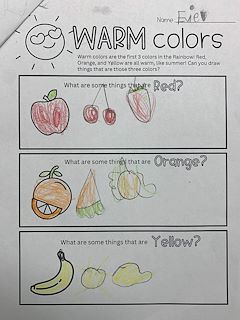 Name
WARM colors
Warm colors are the first 3 colors in the Rainbow! Red,
Orange, and Yellow are all warm, like summer! Can you draw
things that are those three colors?
What are some things that are Red?
What are some things that are Orange?
What are some things that are Yellow?